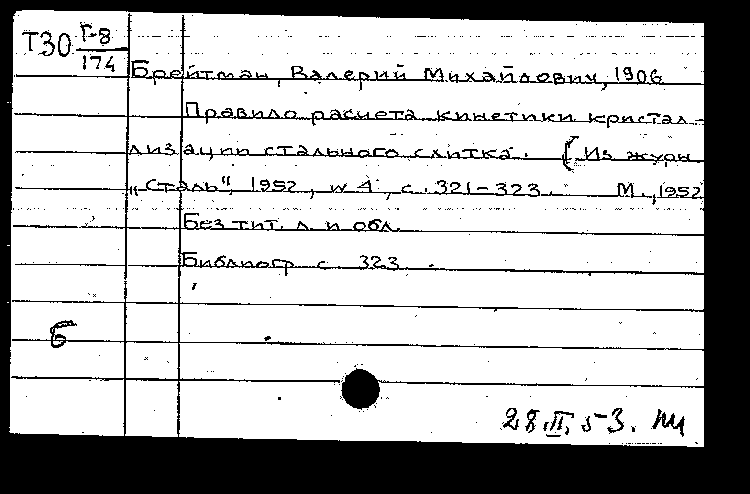 Т30 Г-8
174
Брейтман, Валерий Михайлович, 1906
Правило расчета кинетики кристал-
лизации стального слитка. (Из журн
"Сталь", 1952, № 4, с. 321-323. М., 1952
Без тит. л. и обл.
Библиогр с 323.
Б
28.II.53.